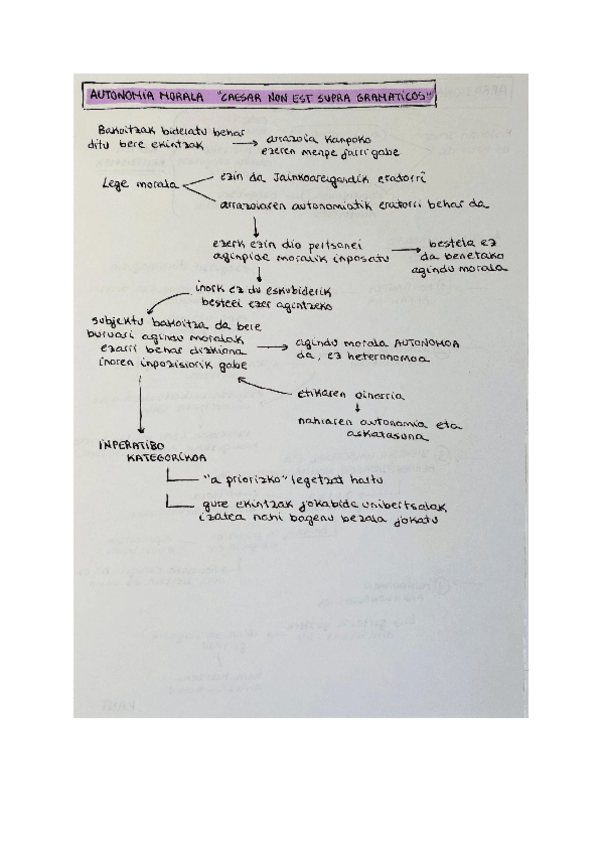 AUTONOMIA MORALA "CAESAR NON EST SUPRA GRAMATICOS"
Bakoitzak bideratu behar
ditu bere ekintzak → arrazoia kanpoko
ezeren menpe jarri gabe
Lege morala
ezin da Jainkoarengandik eratorri
arrazoiaren autonomiatik eratorri behar da
ezerk ezin dio pertsonei
aginpide moralik inposatu → bestela ez
da benetako
agindu morala
inork ez du eskubiderik
besteei ezer agintzeko
subjektu bakoitza da bere
buruari agindu moralak
ezarri behar dizkiona
inoren inposiziorik gabe
→ agindu morala AUTONOMOA
da, ez heteronomoa
etikaren oinarria
nahiaren autonomia eta
askatasuna
INPERATIBO
KATEGORIKOA
"a priorizko" legetzat hartu
gure ekintzak jokabide unibertsalak
izatea nahi bagenu bezala jokatu